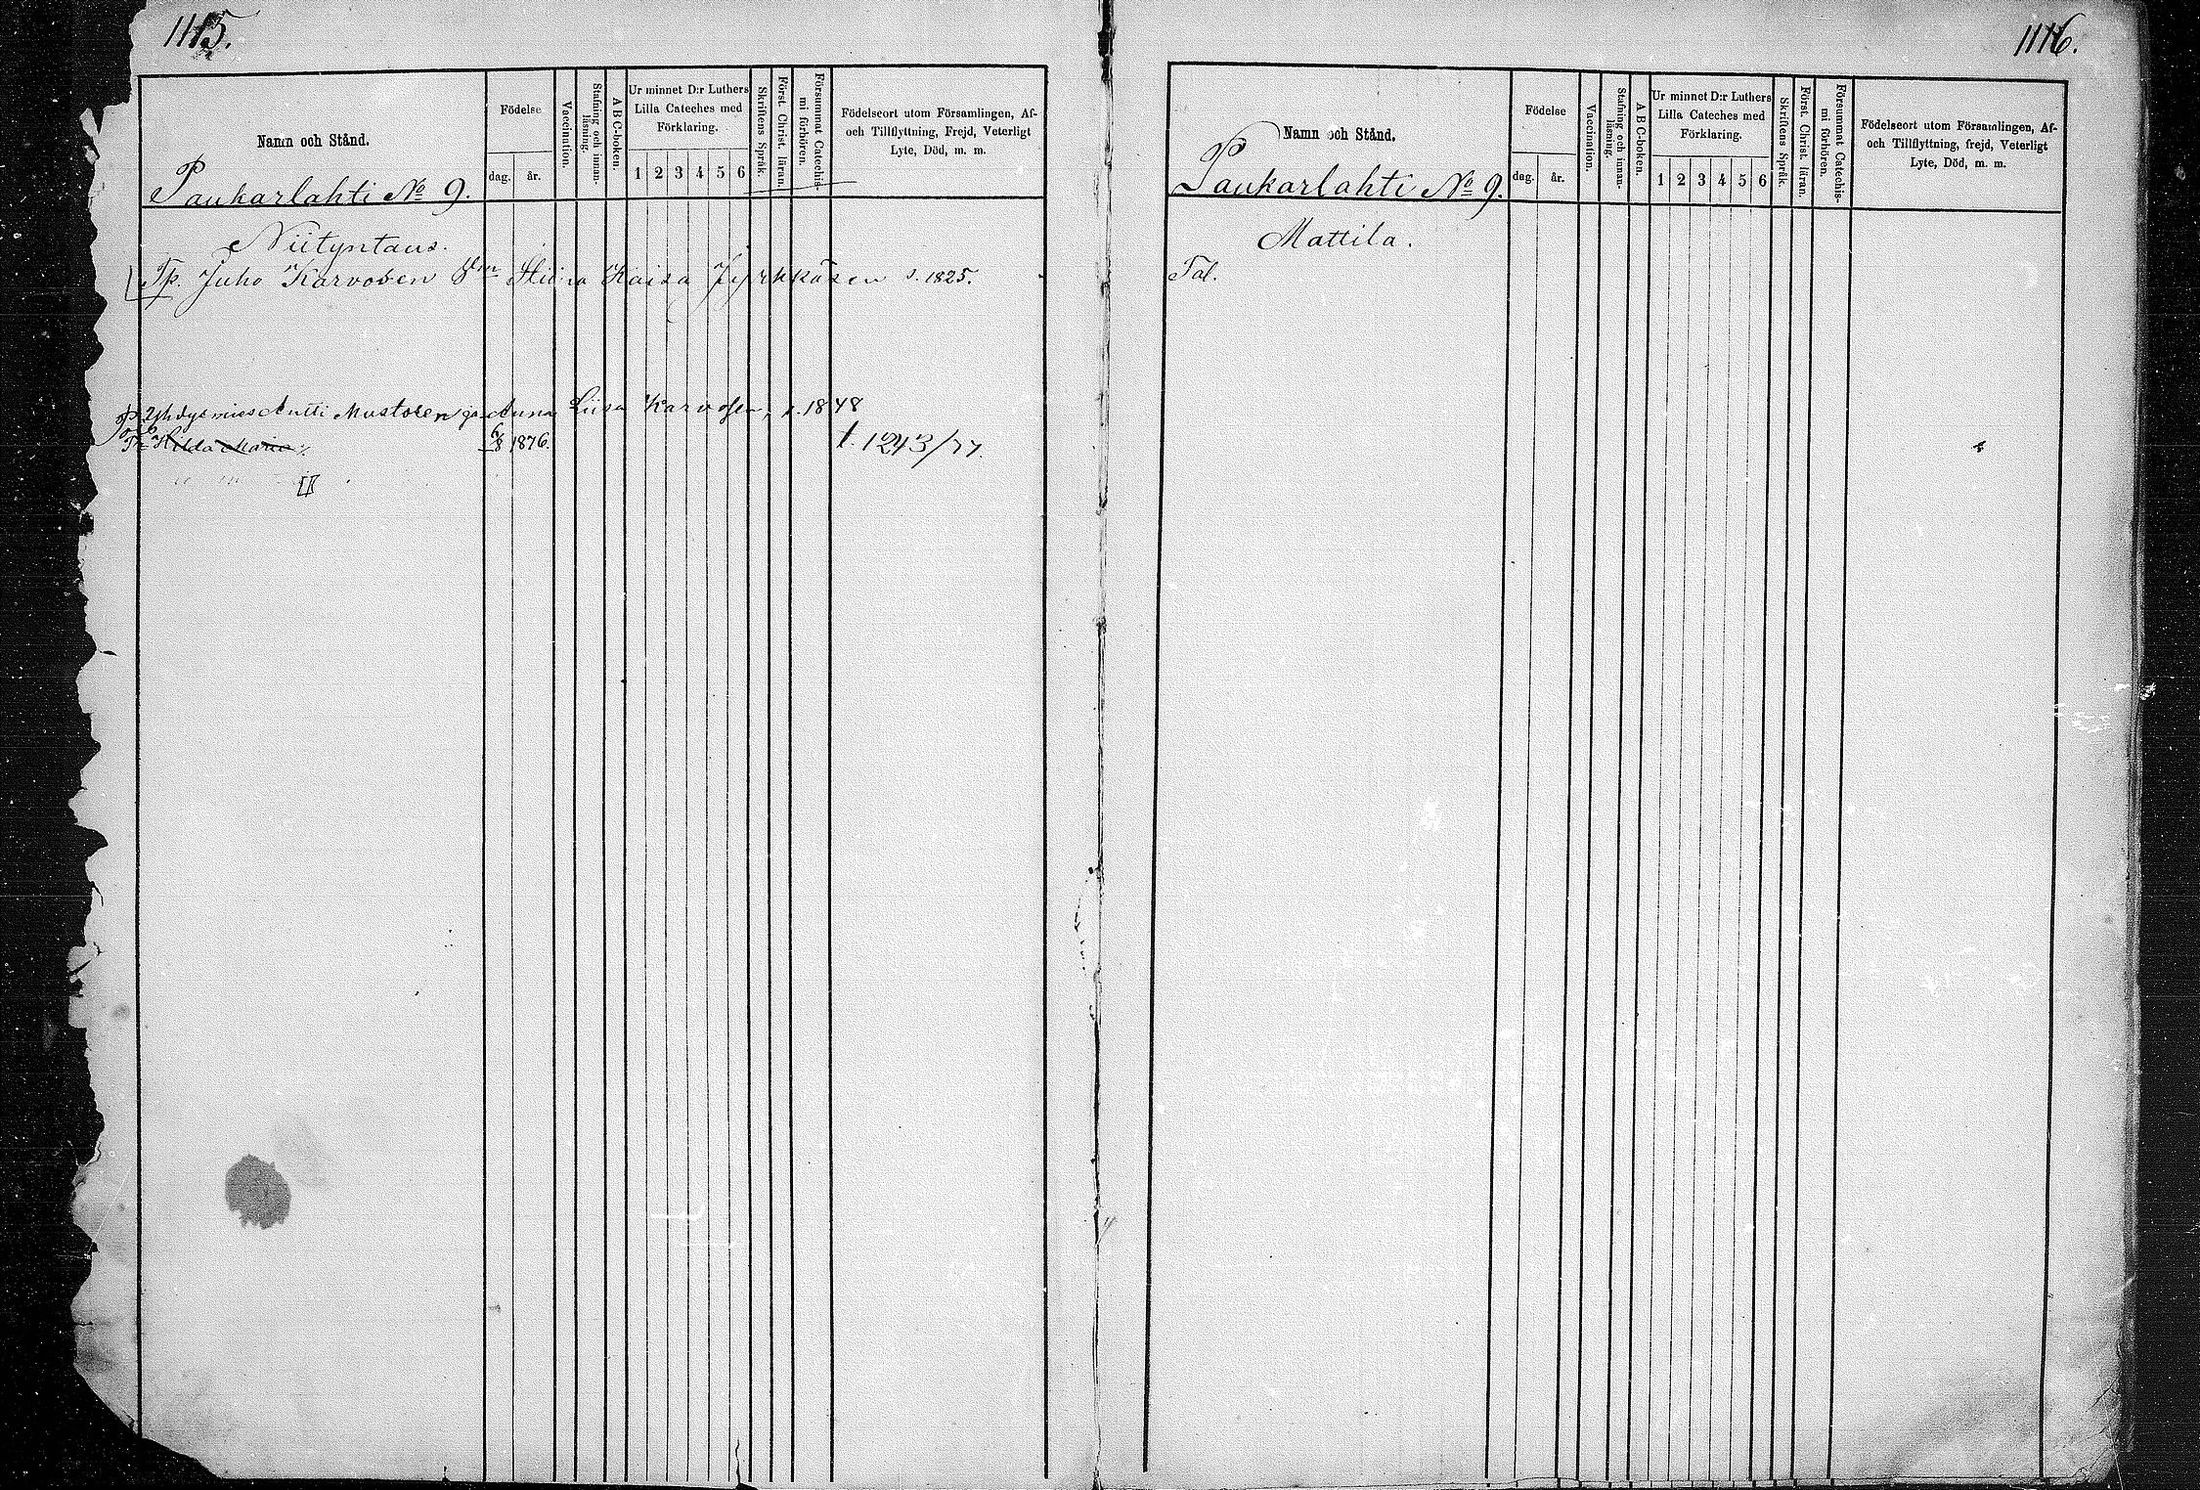 1115.
Namn och Stånd.
Födelse
dag. år.
Vaccination.
Stafning och innan-
läsning.
A B C-boken.
Ur minnet D:r Luthers
Lilla Cateches med
Förklaring.
1 2 3 4 5 6
Skriftens Språk.
Först. Christ. läran.
Försummat Catechis-
mi förhören.
Födelseort utom Församlingen, Af-
och Tillflyttning, Frejd, Veterligt
Lyte, Död, m. m.
Paukarlahti No 9.
Niityntaus.
Tp. Juho Karvosen Stiina Kaisa Jyrkkäsen s. 1825.
Antti Mustosen ja Anna Liisa Karvosen, s. 1848
Hilda Maria 6/8 1876. 1243/77.
1116.
Namn och Stånd.
Födelse
dag. år.
Vaccination.
Stafning och innan-
läsning.
A B C-boken.
Ur minnet D:r Luthers
Lilla Cateches med
Förklaring.
1 2 3 4 5 6
Skriftens Språk.
Först. Christ. läran.
Försummat Catechis-
mi förhören.
Födelseort utom Församlingen, Af-
och Tillflyttning, frejd, Veterligt
Lyte, Död, m. m.
Paukarlahti No 9.
Mattila.
Tal.